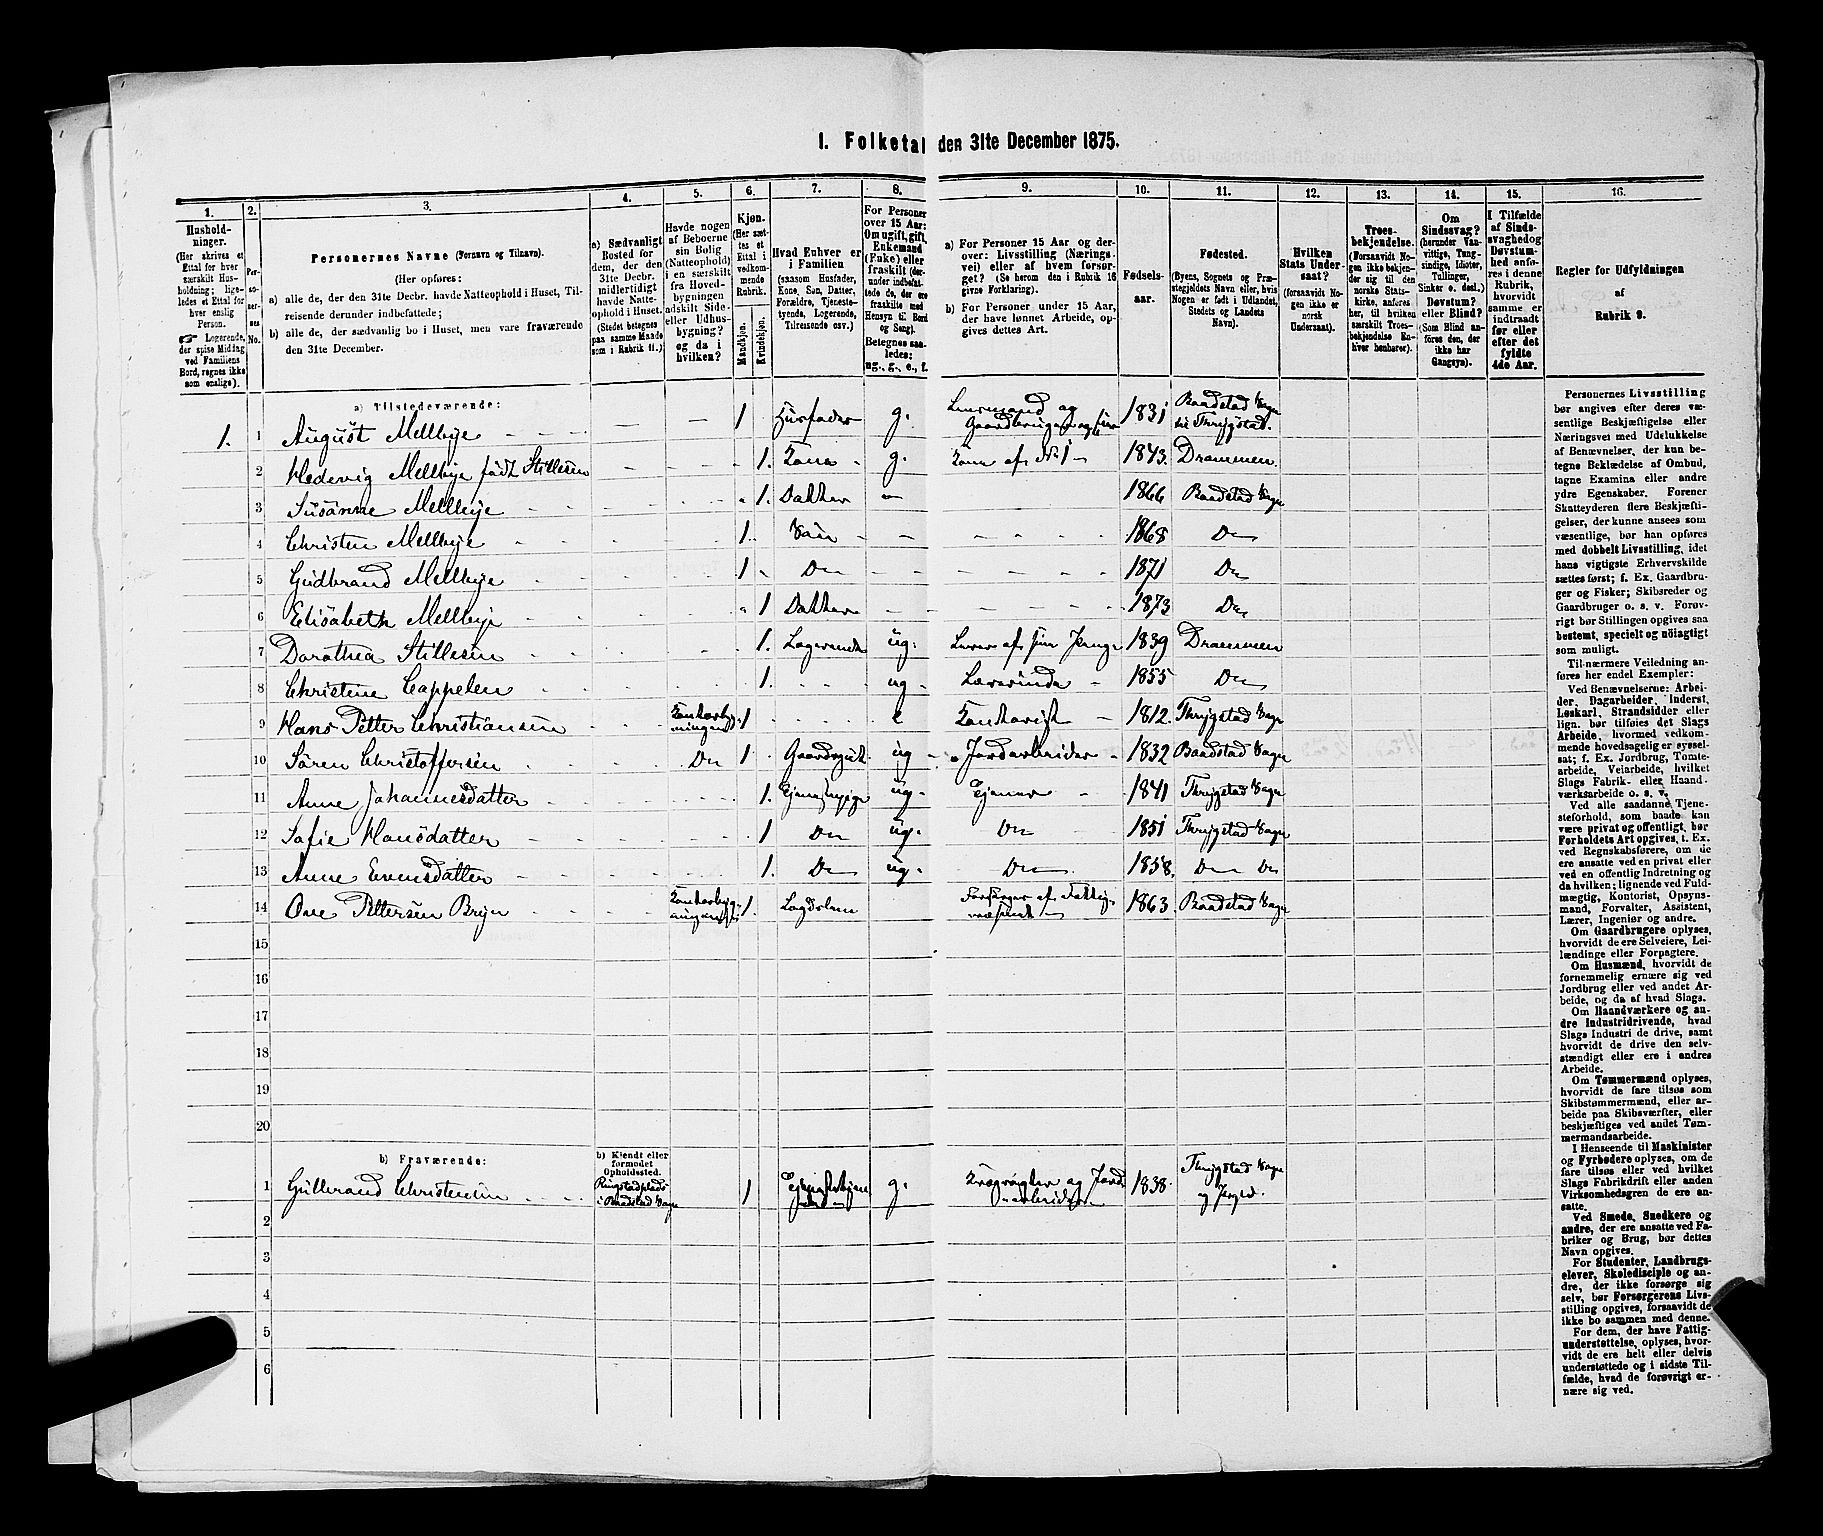 1. Folketal den 31te December 1875.
1.
Hushold-
ninger.
(Her skrives et
Ettal for hver
særskilt Hus-
holdning; lige-
ledes et Ettal for
hver enslig
Person.
☞ Logerende,
der spise Middag
ved Familiens
Bord, regnes ikke
som enslige).
2.
Per-
so-
ner-
nes
No.
3.
Personernes Navne (Fornavn og Tilnavn).
(Her opføres:
a) alle de, der den 31te Decbr. havde Natteophold i Huset, Til-
reisende derunder indbefattede;
b) alle de, der sædvanlig bo i Huset, men vare fraværende
den 31te December.
4.
a) Sædvanligt
Bosted for
dem, der den
31te Decbr.
midlertidigt
havde Natte-
ophold i Huset.
(Stedet betegnes
paa samme Maade
som i Rubrik 11.)
5.
Havde nogen
af Beboerne
sin Bolig
(Natteophold)
i en særskilt
fra Hoved-
bygningen
adskilt Side-
eller Udhus-
bygning?
og da i
hvilken?
6.
Kjøn.
(Her sæt-
tes et
Ettal i
vedkom-
mende
Rubrik.
Mandkjøn.
Kvindekjøn.
7.
Hvad Enhver er
i Familien
(saasom Husfader,
Kone, Søn, Datter,
Forældre, Tjeneste-
tyende, Logerende,
Tilreisende osv.)
8.
For Personer
over 15 Aar:
Om ugift, gift,
Enkemand
(Enke) eller
fraskilt (der-
under indbefat-
tede de, der ere
fraskilte med
Hensyn til Bord
og Seng).
Betegnes saa-
ledes:
ug., g., e., f.
9.
a) For Personer 15 Aar og der-
over: Livsstilling (Nærings-
vei) eller af hvem forsør-
get? (Se herom den i Rubrik 16
givne Forklaring).
b) For Personer under 15 Aar,
der have lønnet Arbeide, op-
gives dettes Art.
10.
Fødsels-
aar.
11.
Fødested.
(Byens, Sognets og Præ-
stegjeldets Navn eller, hvis
Nogen er født i Udlandet,
Stedets og Landets
Navn).
12.
Hvilken
Stats Under-
saat?
(forsaavidt No-
gen ikke er
norsk
Undersaat).
13.
Troes-
bekjendelse.
(Forsaavidt No-
gen ikke bekjen-
der sig til den
norske Stats-
kirke, anføres
her, til hvilken
særskilt Troes-
bekjendelse En-
hver henhører).
14.
Om
Sindssvag?
(herunder Van-
vittige, Tung-
sindige, Idioter,
Tullinger,
Sinker o. desl.)
Døvstum?
eller Blind?
(Som Blind an-
føres den, der
ikke har
Gangsyn).
15.
I Tilfælde
af Sinds-
svaghed og
Døvstum-
hed anfø-
res i denne
Rubrik,
hvorvidt
samme er
indtraadt
før eller
efter det
fyldte
4de Aar.
16.
Regler for Udfyldningen
af
Rubrik 9.
a) Tilstedeværende:
1. 1 August Mellbye — — 1 Husfader g. Lensmand og Gaardbruger 1831 Baadstad Sogn Thrygstad.
2 Hedevig Mellbye født Stillesen 1. Kone g. Kone af No 1 1843. Drammen
3 Susanne Mellbye 1. Datter 1866 Baadstad Sogn
4 Christen Mellbye 1. Søn 1868 Do
5 Gudbrand Mellbye 1 Do 1871 Do
6 Elisabeth Mellbye 1 Datter 1873 Do
7 Dorothea Stillesen 1. Logerende ug. Lever af sine Penge 1839 Drammen
8 Christine Cappelen 1. ug Lærerinde 1855 Do
9 Hans Petter Christiansen Kontorbygningen 1 e Kontorist 1812. Thrygstad Sogn
10 Søren Christoffersen Do 1 Gaardsgut ug Jordarbeider 1832 Baadstad Sogn
11 Anne Johannesdatter 1. Tjenestepige ug. Tjener 1841 Thrygstad Sogn
12 Sofie Hansdatter 1 Do ug. Do 1851 Thrygstad Sogn
13 Anne Evensdatter 1. Do ug. Do 1858. Do Do
14 Ove Pettersen Bryn Kontorbygningen 1. Lægdslem Forsørges af Fattigvæsenet 1863 Baadstad Sogn
15
16
17
18
19
20
b) Fraværende:
b) Kjendt eller
formodet
Opholdssted.
1 Gulbrand Christensen Ringstadplads i Baadstad Sogn 1 g. og Jordarbeider 1838. Thrygstad Sogn og Prgjld.
2
3
4
5
6
Personernes Livsstilling
bør angives efter deres væ-
sentlige Beskjæftigelse eller
Næringsvei med Udelukkelse
af Benævnelser, der kun be-
tegne Beklædelse af Ombud,
tagne Examina eller andre
ydre Egenskaber. Forener
Skatteyderen flere Beskjæfti-
gelser, der kunne ansees som
væsentlige, bør han opføres
med dobbelt Livsstilling, idet
hans vigtigste Erhvervskilde
sættes først; f. Ex. Gaardbru-
ger og Fisker; Skibsreder og
Gaardbruger o. s. v. Forøv-
rigt bør Stillingen opgives saa
bestemt, specielt og nöiagtigt
som muligt.
Til nærmere Veiledning an-
føres her endel Exempler:
Ved Benævnelserne: Arbei-
der, Dagarbeider, Inderst,
Løskarl, Strandsidder eller
lign. bør tilføies det Slags
Arbeide, hvormed vedkom-
mende hovedsagelig er syssel-
sat; f. Ex. Jordbrug, Tomte-
arbeide, Veiarbeide, hvilket
Slags Fabrik- eller Haand-
værksarbeide o. s. v.
Ved alle saadanne Tjene-
steforhold, som baade kan
være privat og offentligt, bør
Forholdets Art opgives, t. Ex.
ved Regnskabsførere, om de
ere ansatte ved en privat eller
ved en offentlig Indretning og
da hvilken; lignende ved Fuld-
mægtig, Kontorist, Opsyns-
mand, Forvalter, Assistent,
Lærer, Ingeniør og andre.
Om Gaardbrugere oplyses,
hvorvidt de ere Selveiere, Lei-
lændinge eller Forpagtere.
Om Husmænd, hvorvidt de
fornemmelig ernære sig ved
Jordbrug eller ved andet Ar-
beide, og da af hvad Slags.
Om Haandværkere og an-
dre Industridrivende, hvad
Slags Industri de drive, samt
hvorvidt de drive den selv-
stændigt eller ere i andres
Arbeide.
Om Tømmermænd oplyses,
hvorvidt de fare tilsøs som
Skibstømmermænd, eller ar-
beide paa Skibsværfter, eller
beskjæftiges ved andet Tøm-
mermandsarbeide.
I Henseende til Maskinister
og Fyrbødere oplyses, om de
fare tilsøs eller ved hvilket
Slags Fabrikdrift eller anden
Virksomhedsgren de ere an-
satte.
Ved Smede, Snedkere og
andre, der ere ansatte ved Fa-
briker og Brug, bør dettes
Navn opgives.
For Studenter, Landbrugs-
elever, Skoledisciple og an-
dre, der ikke forsørge sig
selv, bør Forsørgerens Livs-
stilling opgives, forsaavidt de
ikke bo sammen med denne.
For dem, der have Fattig-
understøttelse, oplyses, hvor-
vidt de ere helt eller delvis
understøttede og i sidste Til-
fælde, hvad de forøvrigt er-
nære sig ved.